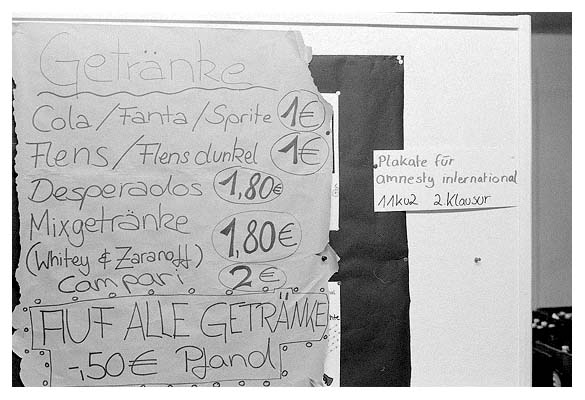 Getränke
Cola/Fanta/Sprite 1€
Flens/Flens dunkel 1€
Desperados 1,80€
Mixgetränke
(Whitey & Zaranoff) 1,80€
Campari 2€
AUF ALLE GETRÄNKE
-,50€ Pfand
Plakate für
amnesty international
11ku2 2.Klausur